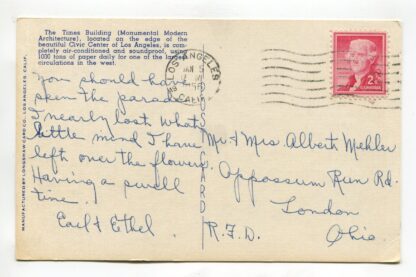 The Times Building (Monumental Modern
Architecture), located on the edge of the
beautiful Civic Center of Los Angeles, is com-
pletely air-conditioned and soundproof, using
1000 tons of paper daily for one of the largest
circulations in the west.
You should have
seen the parade
I nearly lost what
little mind I have
left over the flowers
Having a swell
time.
Earl & Ethel.
LOS ANGELES
CALIF.
JAN 5
2¢
POST CARD
Mr & Mrs Albert Mehler
Oppossum Run Rd.
London
R.F.D. Ohio.
MANUFACTURED BY LONGSHAW CARD CO., LOS ANGELES, CALIF.